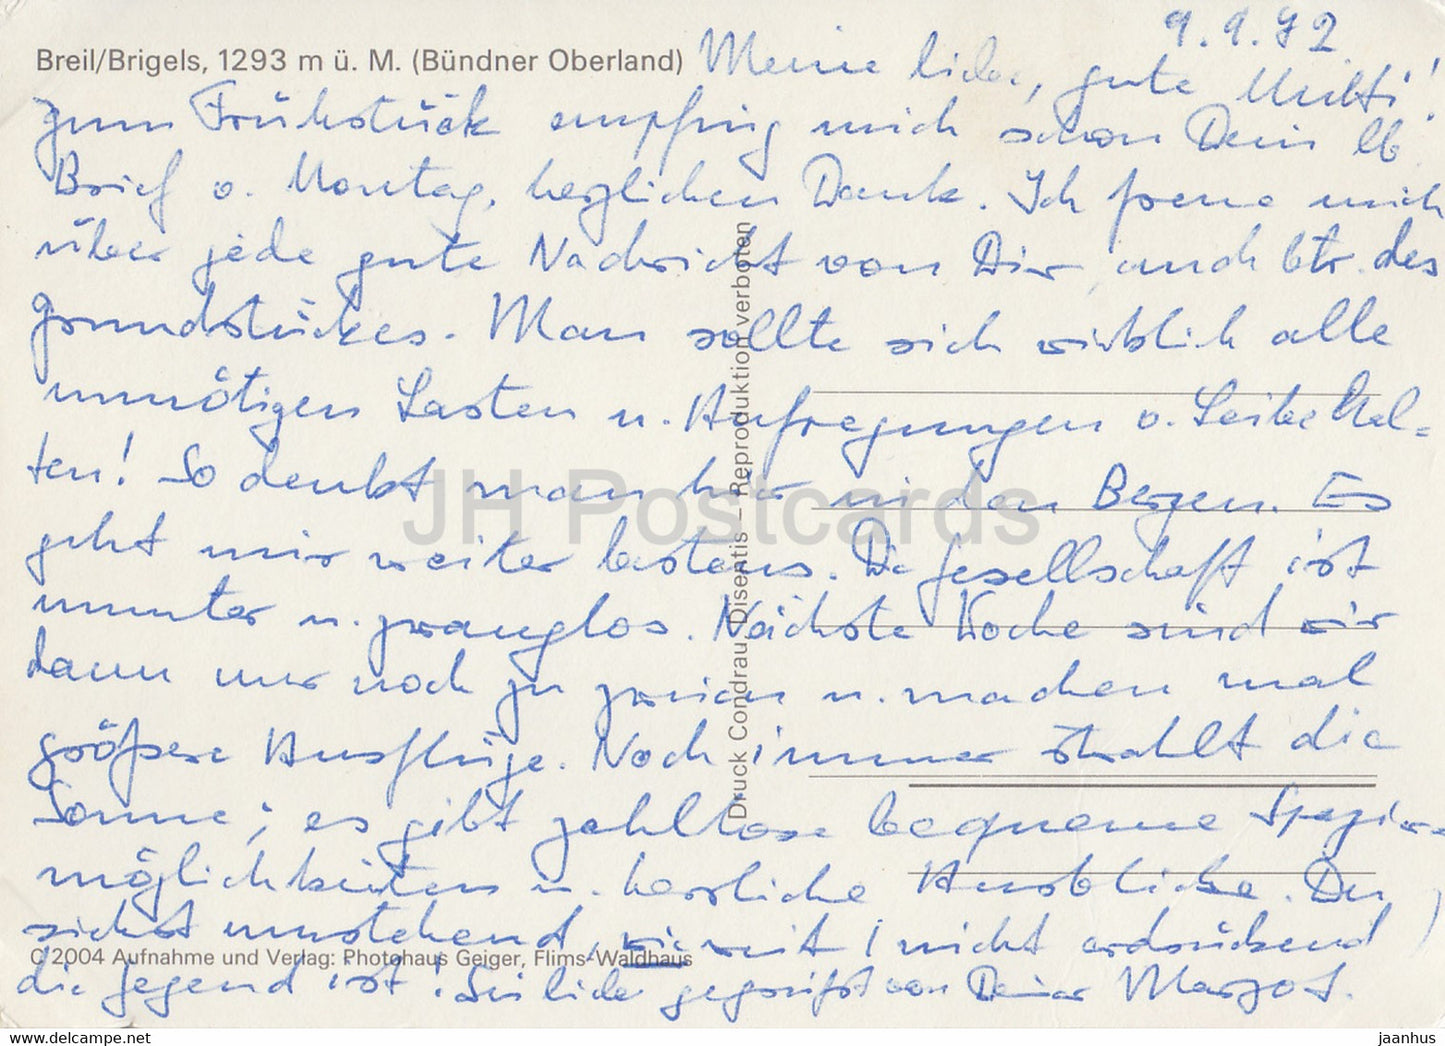 Breil/Brigels, 1293 m ü. M. (Bündner Oberland)
9.9.72
Meine liebe, gute Mutti!
zum Frühstück empfing mich schon Dein lb
Brief v. Montag, herzlichen Dank. Ich freue mich
über jede gute Nachricht von Dir, auch betr. des
Grundstückes. Man sollte sich wirklich alle
unnötigen Lasten u. Aufregungen v. Leibe hal-
ten! So denkt man hier in den Bergen. Es
geht mir weiter bestens. Die Gesellschaft ist
munter u. zwanglos. Nächste Woche sind wir
dann nur noch zu zweien u. machen mal
größere Ausflüge. Noch immer strahlt die
Sonne; es gibt zahllose bequeme Spazier-
möglichkeiten u. herrliche Ausblicke. Du
siehst umstehend, wie weit (nicht erdrückend)
die Gegend ist! Sei lieb gegrüßt von Deiner Margot.
Druck Condrau, Disentis – Reproduktion verboten
C 2004 Aufnahme und Verlag: Photohaus Geiger, Flims-Waldhaus
JH Postcards
hippostcard.com
jaanhus